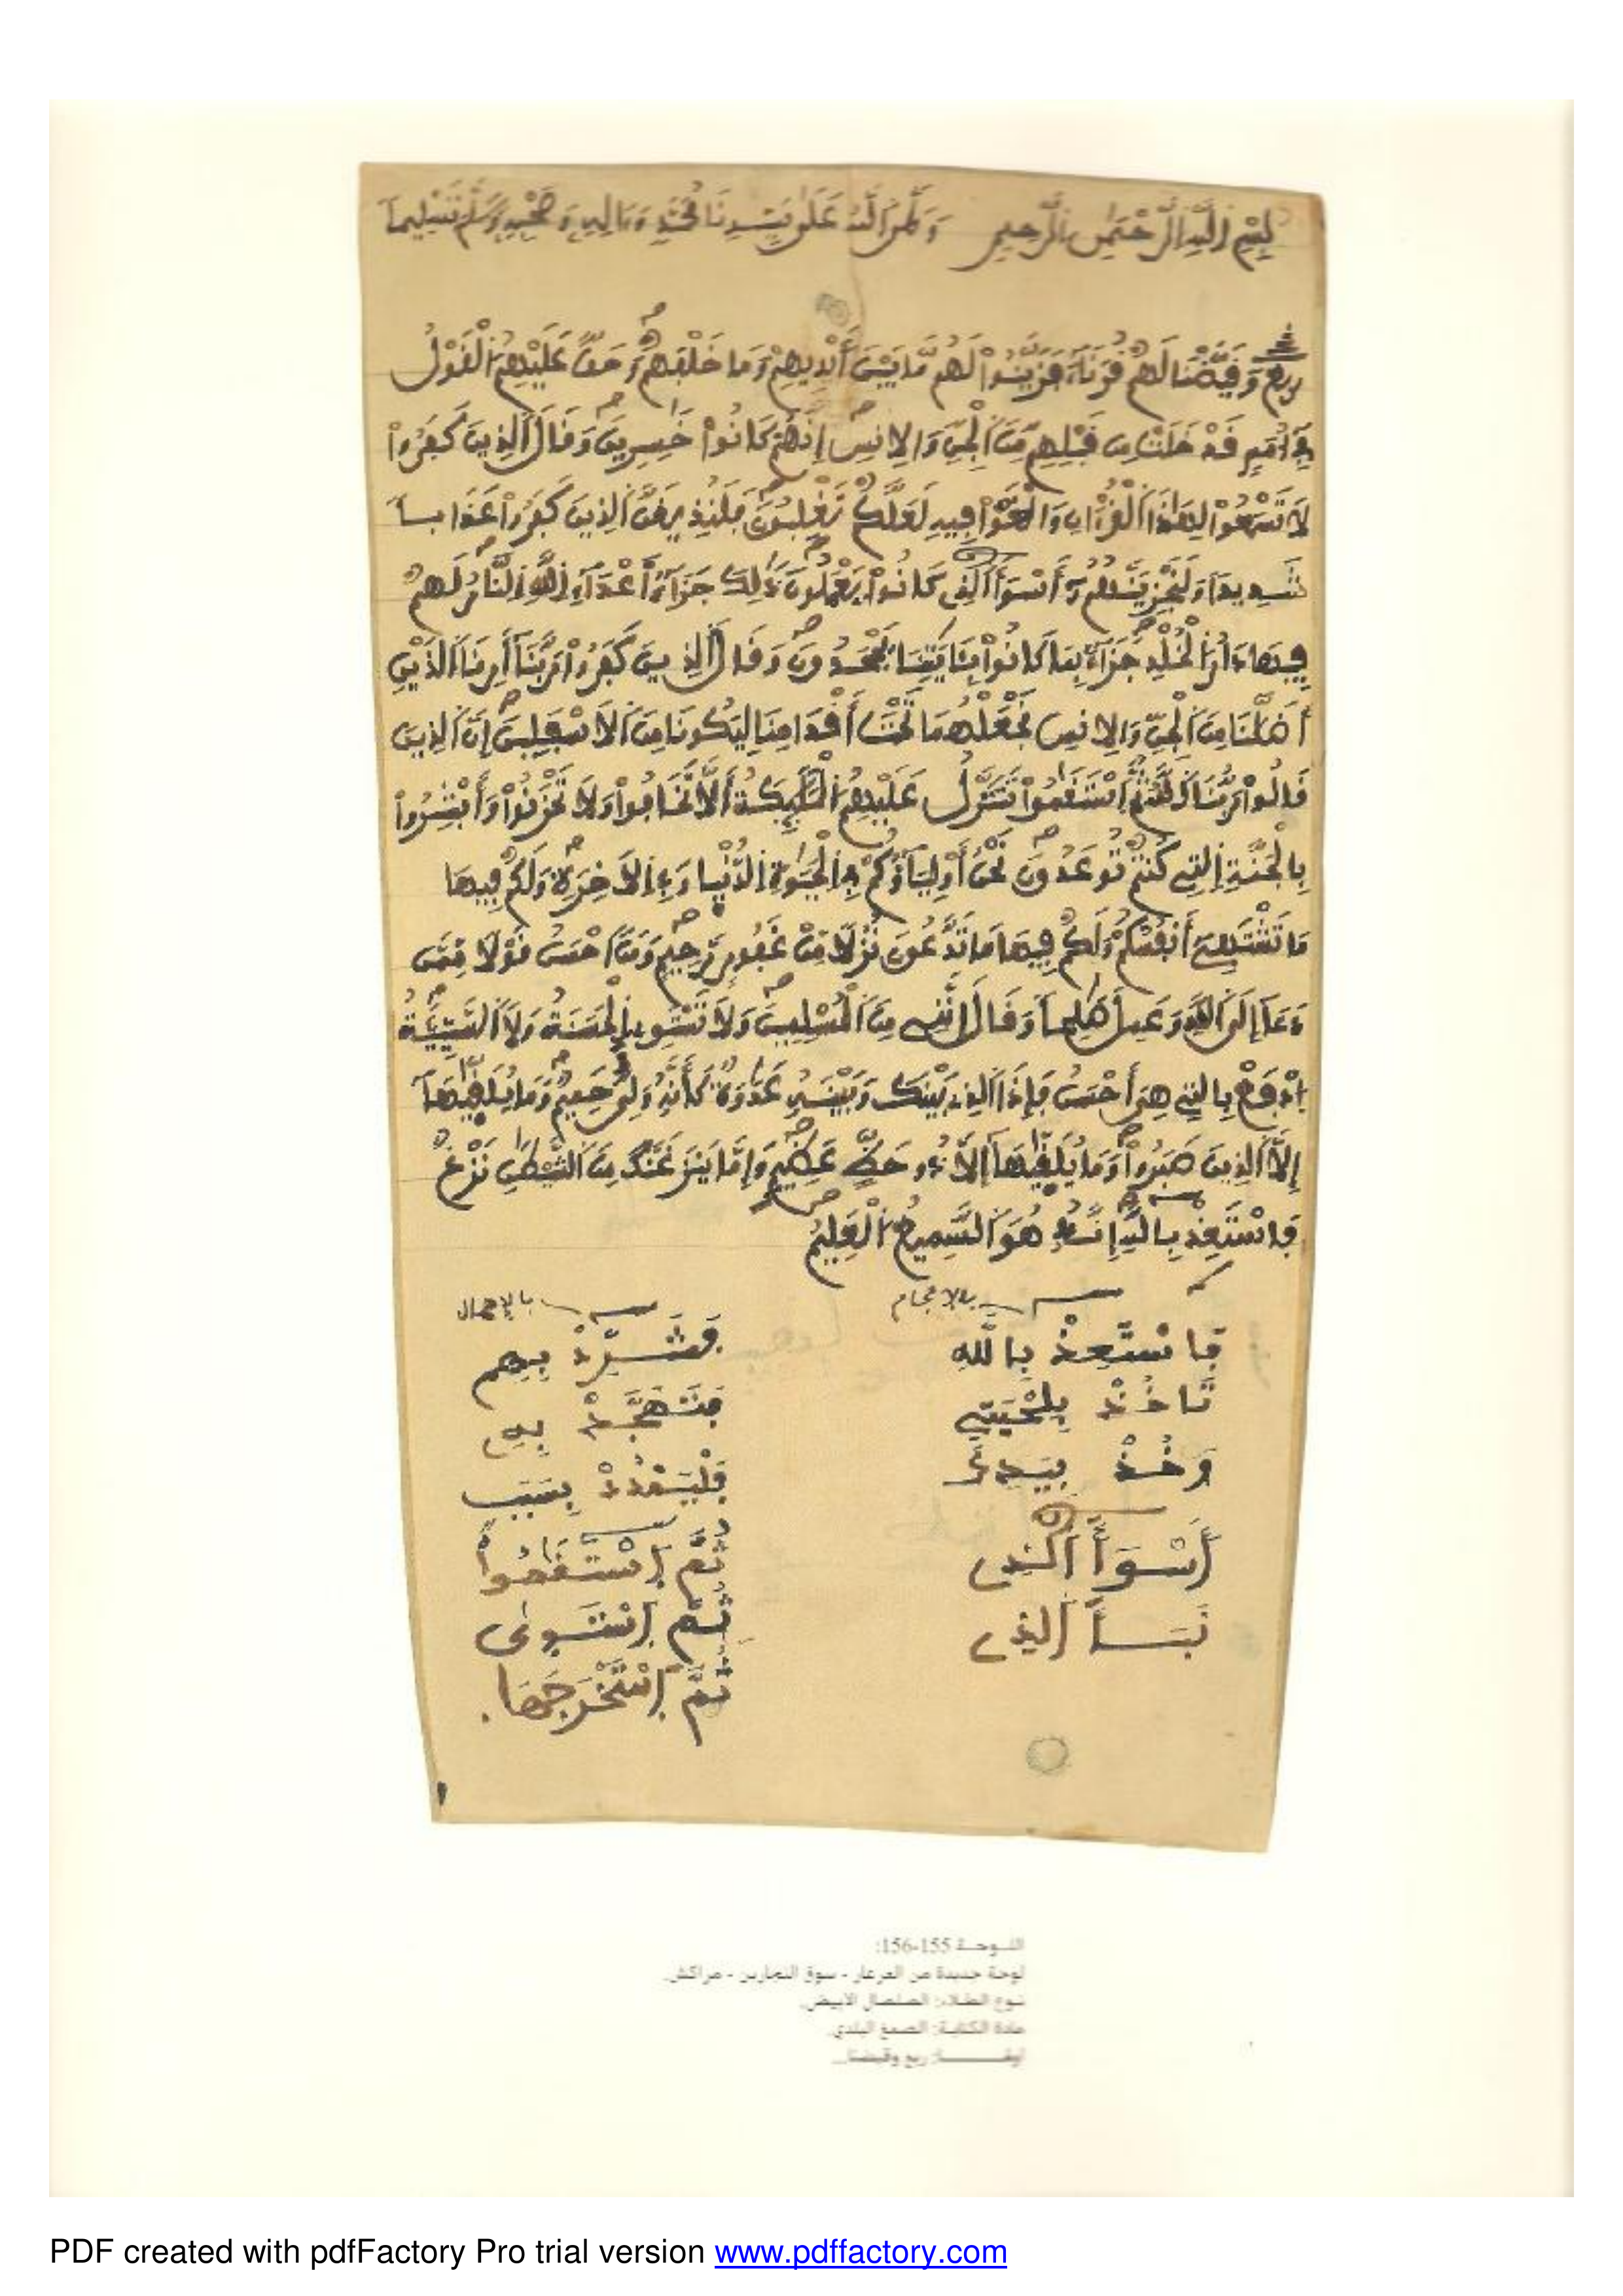 بِسْمِ اللَّهِ الرَّحْمَٰنِ الرَّحِيمِ وَصَلَّى اللَّهُ عَلَىٰ سَيِّدِنَا مُحَمَّدٍ وَءَالِهِ وَصَحْبِهِ وَسَلَّمَ تَسْلِيماً
ربع وَقَيَّضْنَا لَهُمْ قُرَنَآءَ فَزَيَّنُواْ لَهُم مَّا بَيْنَ أَيْدِيهِمْ وَمَا خَلْفَهُمْ وَحَقَّ عَلَيْهِمُ الْقَوْلُ
فِے أُمَمٍ قَدْ خَلَتْ مِن قَبْلِهِم مِّنَ اَلْجِنِّ وَالِانسِ إِنَّهُمْ كَانُواْ خَٰسِرِينَ وَقَالَ اَلذِينَ كَفَرُواْ
لَا تَسْمَعُواْ لِهَٰذَا اَلْقُرْءَانِ وَالْغَوْاْ فِيهِ لَعَلَّكُمْ تَغْلِبُونَ فَلَنُذِيقَنَّ اَلذِينَ كَفَرُواْ عَذَاباً
شَدِيداً وَلَنَجْزِيَنَّهُمُۥٓ أَسْوَأَ اَلذِے كَانُواْ يَعْمَلُونَ ذَٰلِكَ جَزَآءُ اَعْدَآءِ اِللَّهِ اِلنَّارُ لَهُمْ
فِيهَا دَارُ اُلْخُلْدِ جَزَآءَۢ بِمَا كَانُواْ بِـَٔايَٰتِنَا يَجْحَدُونَ وَقَالَ اَلذِينَ كَفَرُواْ رَبَّنَآ أَرِنَا اَلذَيْنِ
أَضَلَّٰنَا مِنَ اَلْجِنِّ وَالِانسِ نَجْعَلْهُمَا تَحْتَ أَقْدَامِنَا لِيَكُونَا مِنَ اَلَاسْفَلِينَ إِنَّ اَلذِينَ
قَالُواْ رَبُّنَا اَللَّهُ ثُمَّ اَسْتَقَٰمُواْ تَتَنَزَّلُ عَلَيْهِمُ اُلْمَلَٰٓئِكَةُ أَلَّا تَخَافُواْ وَلَا تَحْزَنُواْ وَأَبْشِرُواْ
بِالْجَنَّةِ اِلتِے كُنتُمْ تُوعَدُونَ نَحْنُ أَوْلِيَآؤُكُمْ فِے اِلْحَيَوٰةِ اِلدُّنْيَا وَفِے اِلَاخِرَةِ وَلَكُمْ فِيهَا
مَا تَشْتَهِےٓ أَنفُسُكُمْ وَلَكُمْ فِيهَا مَا تَدَّعُونَ نُزُلًا مِّنْ غَفُورٍ رَّحِيمٍ وَمَنَ اَحْسَنُ قَوْلًا مِّمَّن
دَعَآ إِلَى اَللَّهِ وَعَمِلَ صَٰلِحاً وَقَالَ إِنَّنِے مِنَ اَلْمُسْلِمِينَ وَلَا تَسْتَوِے اِلْحَسَنَةُ وَلَا اَلسَّيِّئَةُ
اُدْفَعْ بِالتِے هِيَ أَحْسَنُ فَإِذَا اَلذِے بَيْنَكَ وَبَيْنَهُۥ عَدَٰوَةٌ كَأَنَّهُۥ وَلِيٌّ حَمِيمٌ وَمَا يُلَقَّيٰهَآ
إِلَّا اَلذِينَ صَبَرُواْ وَمَا يُلَقَّيٰهَآ إِلَّا ذُو حَظٍّ عَظِيمٍ وَإِمَّا يَنزَغَنَّكَ مِنَ اَلشَّيْطَٰنِ نَزْغٌ
فَاسْتَعِذْ بِاللَّهِ إِنَّهُۥ هُوَ اَلسَّمِيعُ اُلْعَلِيمُ
بالاعجام
فَاسْتَعِذْ بِاللَّهِ
تَاخُذْ بِلِحْيَتِے
وَخُذْ بِيَدِكَ
أَسْوَأَ اَلذِے
نَبَأَ اَلذِے
بالاهمال
فَشَرِّدْ بِهِم
فَتَهَجَّدْ بِهِ
فَلْيَمْدُدْ بِسَبَبٍ
ثُمَّ اَسْتَقَٰمُواْ
ثُمَّ اَسْتَوىٰ
ثُمَّ اَسْتَخْرَجَهَا.
اللوحة 155-156:
لوحة جديدة من العرعار - سوق النجارين - مراكش.
نوع الطلاء: الصلصال الأبيض.
مادة الكتابة: الصمغ البلدي.
ربع وقيضنا...
PDF created with pdfFactory Pro trial version www.pdffactory.com